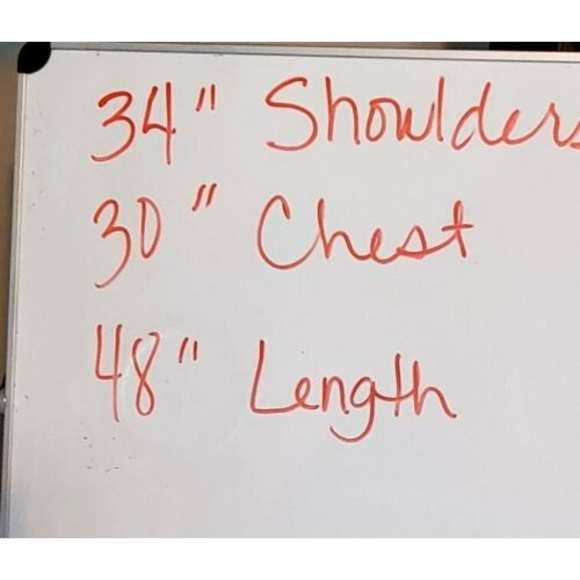 34" Shoulders
30" Chest
48" Length